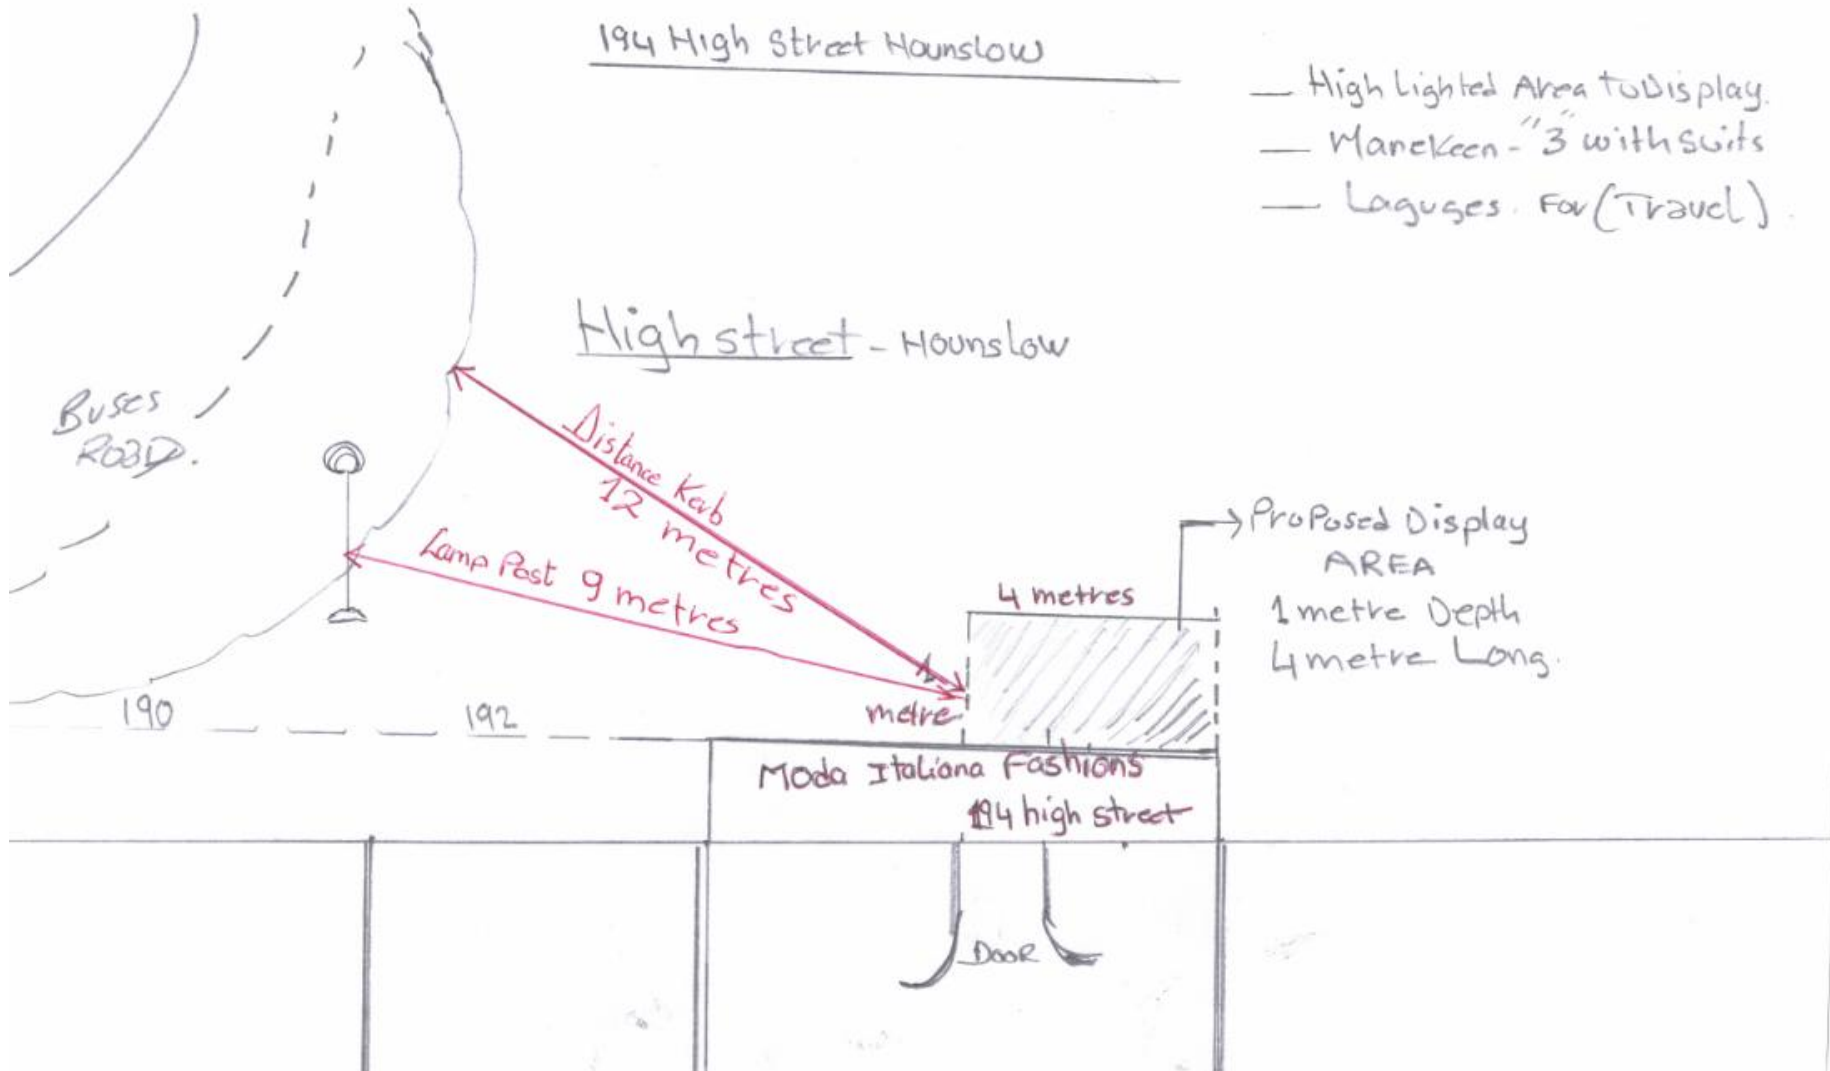 194 High Street Hounslow
— High Lighted Area to Display.
— Manekeen - "3" with Suits
— Laguges. For (Travel).
High street - Hounslow
Buses
ROAD.
Distance Kerb
12 metres
Lamp Post 9 metres
4 metres
Proposed Display
AREA
1 metre Depth
4 metre Long.
1
metre
190
192
Moda Italiana Fashions
194 high street
DOOR